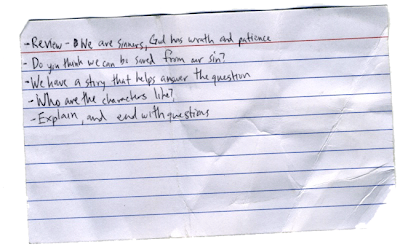 -Review -> We are sinners, God has wrath and patience
- Do you think we can be saved from our sin?
-We have a story that helps answer the question
-Who are the characters like?
-Explain, and end with questions